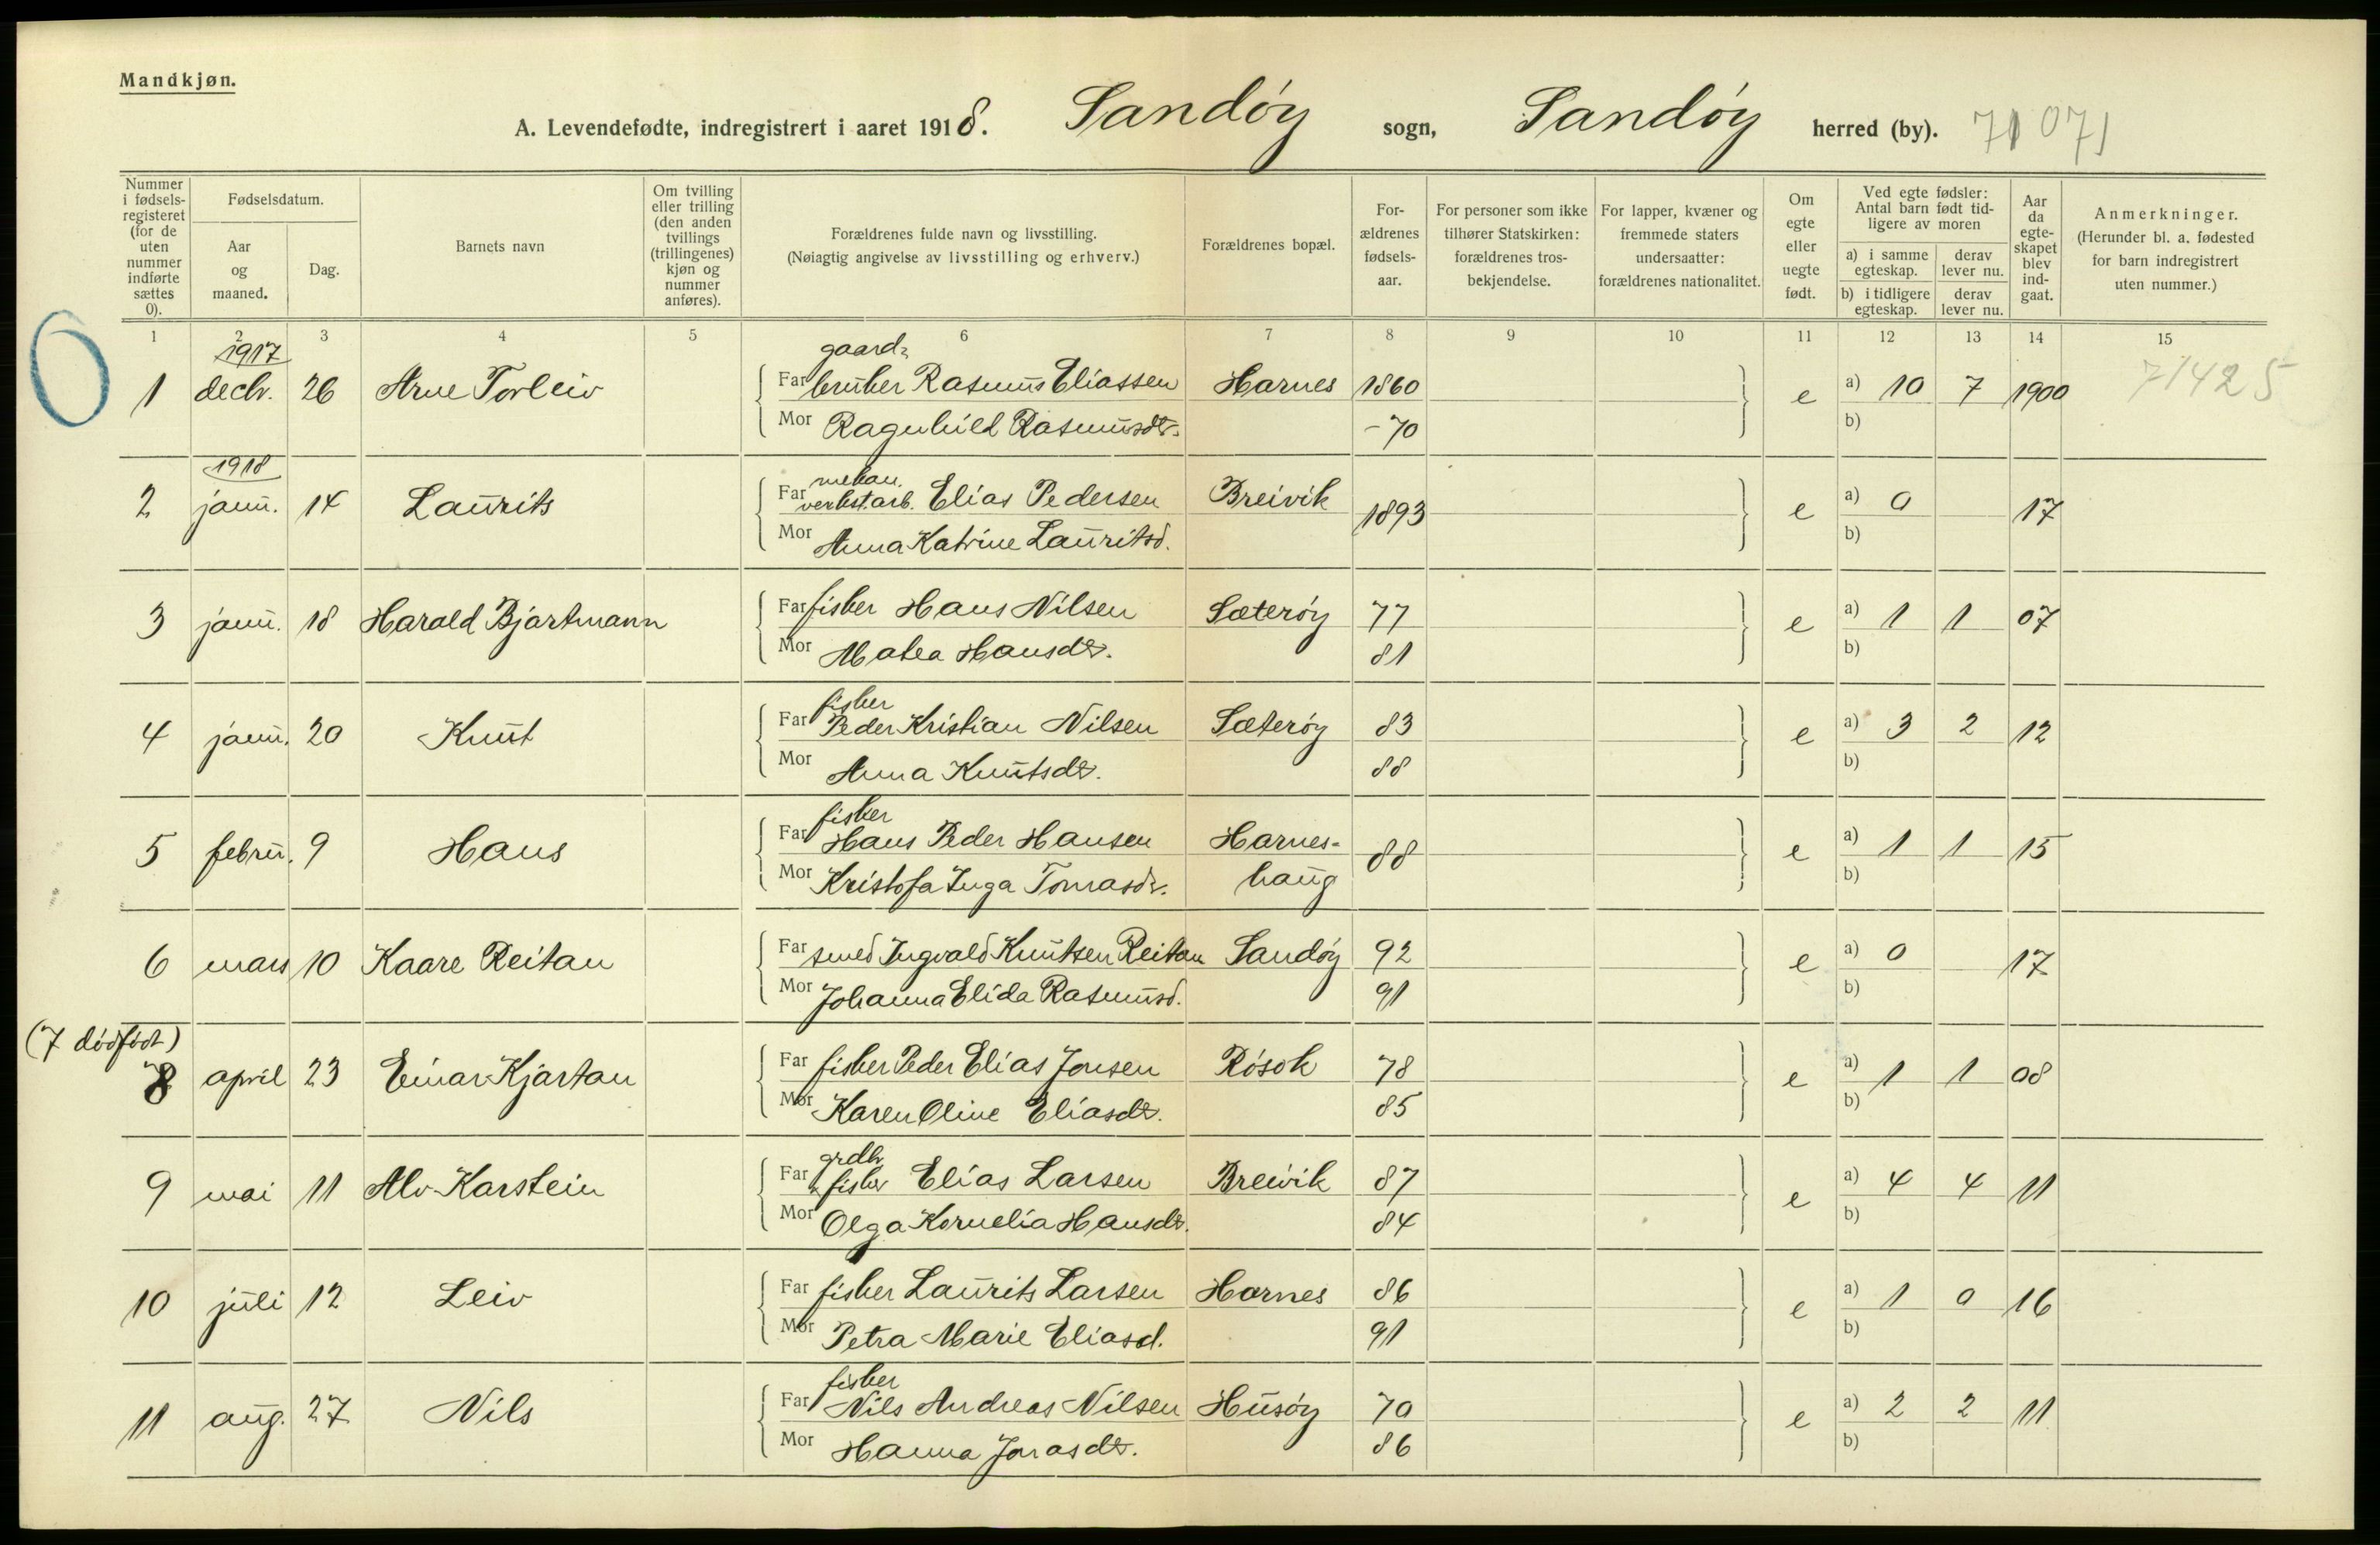 Mandkjøn.
A. Levendefødte, indregistrert i aaret 1918. Sandøy sogn, Sandøy herred (by). 71 071
Nummer i fødselsregisteret (for de uten nummer indførte sættes 0).
Fødselsdatum.
Aar og maaned.
Dag.
Barnets navn
Om tvilling eller trilling (den anden tvillings (trillingenes) kjøn og nummer anføres).
Forældrenes fulde navn og livsstilling.
(Nøiagtig angivelse av livsstilling og erhverv.)
Forældrenes bopæl.
For-ældrenes fødsels-aar.
For personer som ikke tilhører Statskirken: forældrenes tros-bekjendelse.
For lapper, kvæner og fremmede staters undersaatter: forældrenes nationalitet.
Om egte eller uegte født.
Ved egte fødsler: Antal barn født tid-ligere av moren
a) i samme egteskap.
derav lever nu.
b) i tidligere egteskap.
derav lever nu.
Aar da egte-skapet blev ind-gaat.
Anmerkninger.
(Herunder bl. a. fødested for barn indregistrert uten nummer.)
1 2 3 4 5 6 7 8 9 10 11 12 13 14 15
0
1917 gaard-
1 decbr. 26 Arne Torleiv Far bruker Rasmus Eliassen Harnes 1860 e a) 10 7 1900 71425
Mor Ragnhild Rasmusdtr. -70 b)
1918 mekan.
2 janu. 14 Laurits Far verkst.arb. Elias Pedersen Breivik 1893 e a) 0 17
Mor Anna Katrine Lauritsd. b)
3 janu. 18 Harald Bjartmann Far fisker Hans Nilsen Sæterøy 77 e a) 1 1 07
Mor Matea Hansdtr. 81 b)
fisker
4 janu. 20 Knut Far Peder Kristian Nilsen Sæterøy 83 e a) 3 2 12
Mor Anna Knutsdtr. 88 b)
fisker
5 febru. 9 Hans Far Hans Peder Hansen Harnes- 88 e a) 1 1 15
Mor Kristofa Inga Tomasdr. haug b)
6 mars 10 Kaare Reitan Far smed Ingvald Knutsen Reitan Sandøy 92 e a) 0 17
Mor Johanna Elida Rasmusd. 91 b)
(7 dødfødt)
8 april 23 Einar Kjartan Far fisker Peder Elias Jonsen Røsok 78 e a) 1 1 08
Mor Karen Oline Eliasdtr. 85 b)
grdbr
9 mai 11 Alv Karstein Far fisker Elias Larsen Breivik 87 e a) 4 4 11
Mor Olga Kornelia Hansdtr. 84 b)
10 juli 12 Leiv Far fisker Laurits Larsen Harnes 86 e a) 1 0 16
Mor Petra Marie Eliasd. 91 b)
fisker
11 aug. 27 Nils Far Nils Andreas Nilsen Husøy 70 e a) 2 2 11
Mor Hanna Jonasdtr. 86 b)